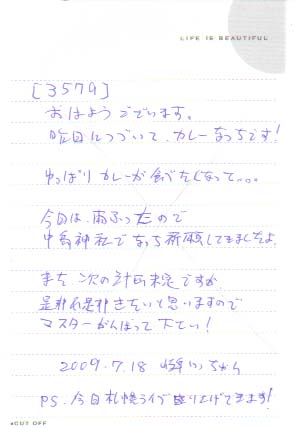 LIFE IS BEAUTIFUL
[3579]
おはようございます。
昨日につづいて、カレーなっちです!
やっぱりカレーが食べたくなって。。。
今日は、雨ふったので
中島神社でなっち祈願してきましたよ
また次の計画未定ですが
是非是非きたいと思いますので
マスターがんばって下さい!
2009.7.18
PS. 今日札幌ライブ盛り上げてきます!
CUT OFF